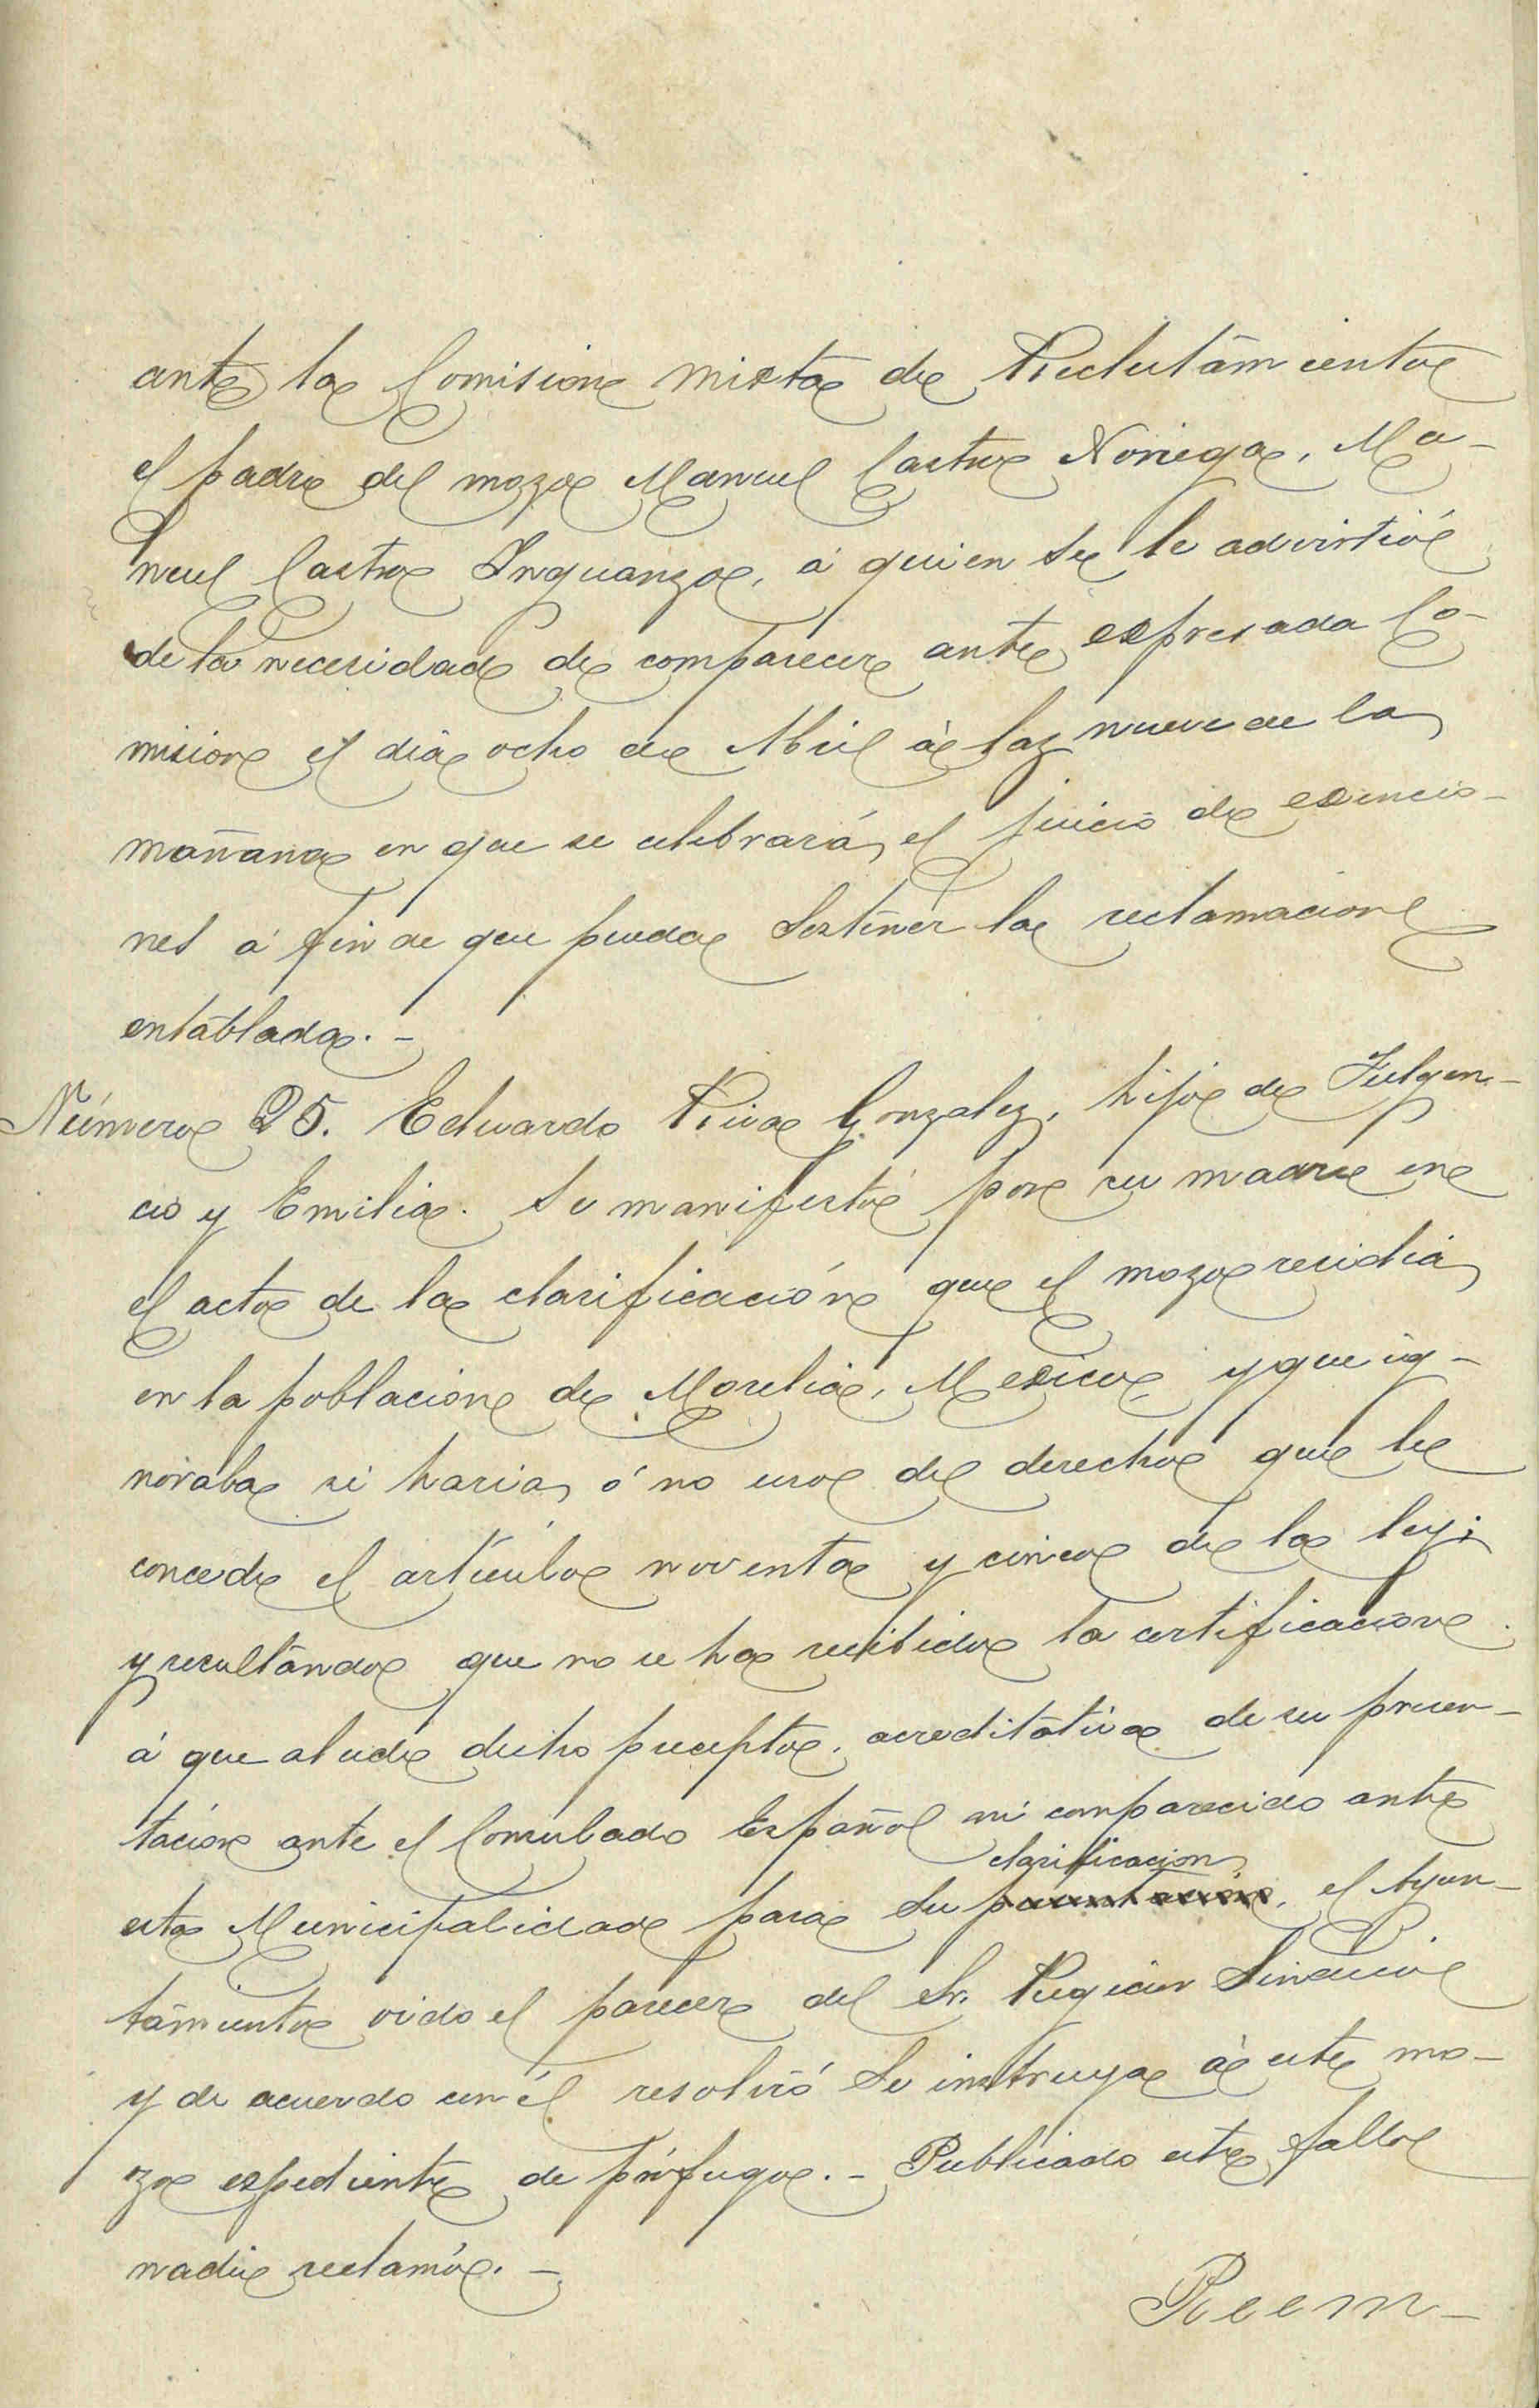 ante la Comision mixta de Reclutamiento
el padre del mozo Manuel Castro Noriega, Ma-
nuel Castro Inguanzo, á quien se le advirtió
de la necesidad de comparecer ante expresada Co-
mision el dia ocho de Abril á las nueve de la
mañana en que se celebrará el juicio de exencio-
nes á fin de que pueda sostener la reclamacion
entablada. -
Número 25. Eduardo Riva Gonzalez, hijo de Fulgen-
cio y Emilia. Se manifestó por su madre en
el acto de la clasificación que el mozo residia
en la poblacion de Morelia, Mexico, y que ig-
noraba si haria ó no uso del derecho que le
concede el artículo noventa y cinco de la ley;
y resultando que no se ha recibido la certificacion
á que alude dicho precepto, acreditativa de su presen-
tación ante el Consulado Español ni comparecido ante
clasificacion
esta Municipalidad para su presentación, el Ayun-
tamiento oido el parecer del Sr. Regidor Sindico
y de acuerdo con él resolvió se instruya á este mo-
zo expediente de prófugo. - Publicado este fallo
nadie reclamó. -
Reem-